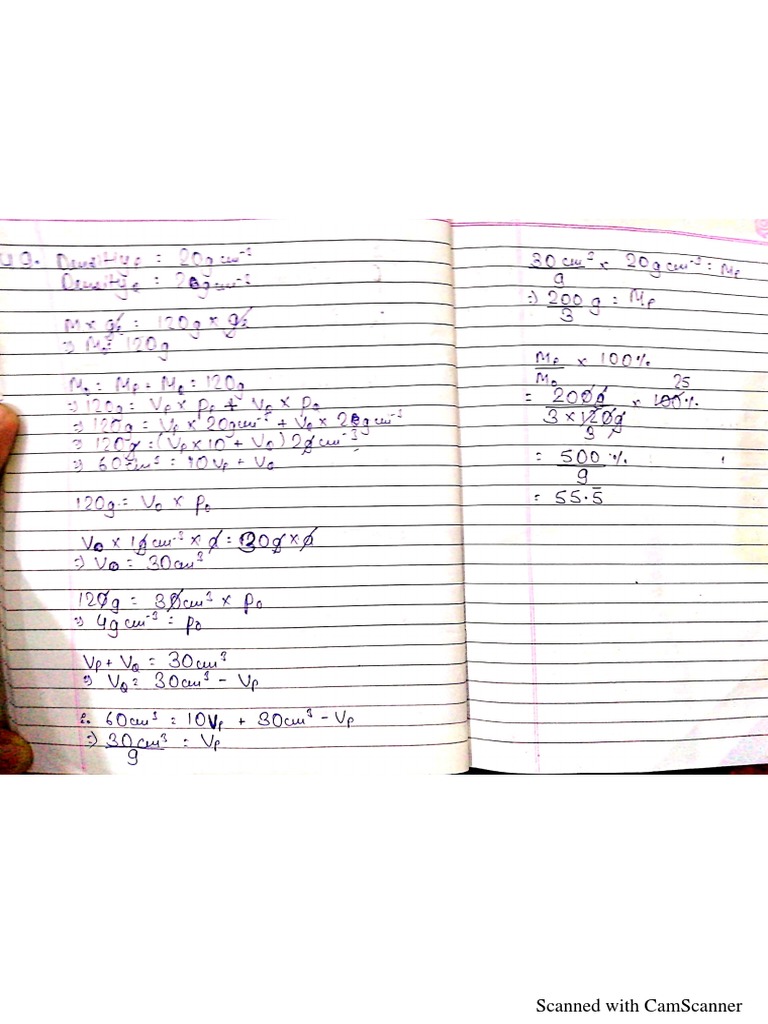 49. Density_P = 20g cm⁻³
Density_Q = 2g cm⁻³
M × g = 120g × g
⇒ M₀ = 120g
M₀ = M_P + M_Q = 120g
⇒ 120g = V_P × ρ_P + V_Q × ρ_Q
⇒ 120g = V_P × 20g cm⁻³ + V_Q × 2g cm⁻³
⇒ 120g = (V_P × 10 + V_Q) 2g cm⁻³
⇒ 60cm³ = 10V_P + V_Q
120g = V₀ × ρ₀
V₀ × 1g cm⁻³ × g = 30g × g
⇒ V₀ = 30cm³
120g = 30cm³ × ρ₀
⇒ 4g cm⁻³ = ρ₀
V_P + V_Q = 30cm³
⇒ V_Q = 30cm³ - V_P
∴ 60cm³ = 10V_P + 30cm³ - V_P
⇒ 30cm³ = V_P
9
30cm³ × 20g cm⁻³ = M_P
9
⇒ 200 g = M_P
3
M_P × 100%
M₀ 25
= 200g × 100%
3 × 120g
3
= 500 %
9
= 55.5̄
Scanned with CamScanner